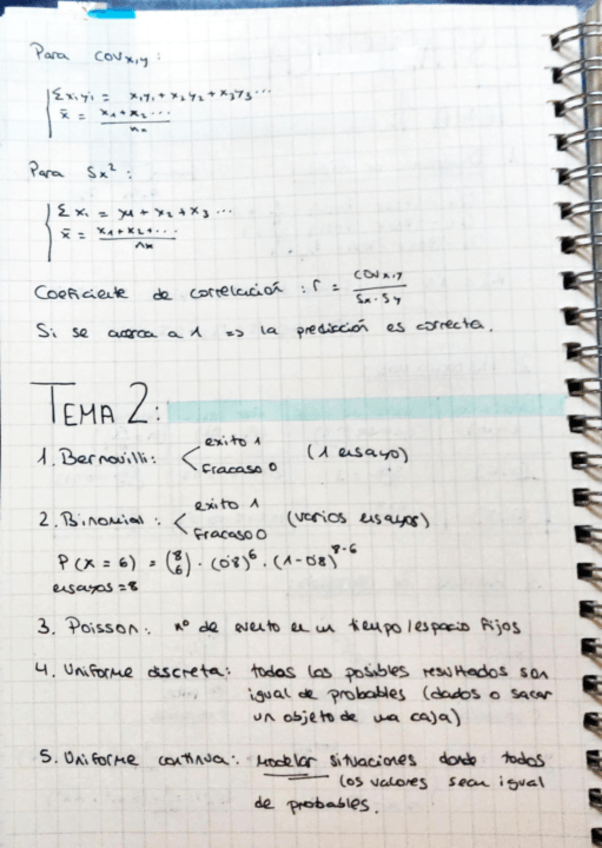 Para COVx,y :
Σxiyi = x1y1 + x2y2 + x3y3...
x̄ = x1 + x2... / nx
Para Sx² :
Σxi = x1 + x2 + x3...
x̄ = x1 + x2 + ... / nx
Coeficiente de correlación : r = COVx,y / Sx · Sy
Si se acerca a 1 => la predicción es correcta.
TEMA 2:
1. Bernouilli: < exito 1 fracaso 0 (1 ensayo)
2. Binomial : < exito 1 fracaso 0 (varios ensayos)
P(x = 6) = (8 6) · (0'8)^6 · (1-0'8)^8-6
ensayos = 8
3. Poisson: nº de evento en un tiempo/espacio fijos
4. Uniforme discreta: todos los posibles resultados son
igual de probables (dados o sacar
un objeto de una caja)
5. Uniforme continua: modelar situaciones donde todos
los valores sean igual
de probables.